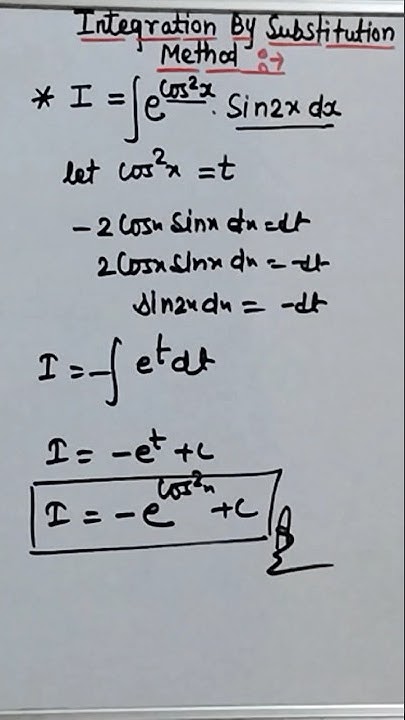 Integration By Substitution
Method :→
* I = ∫e^cos²x . Sin2x dx
let cos²x = t
-2 Cosx Sinx dx = dt
2 Cosx sinx dx = -dt
sin2x dx = -dt
I = -∫ e^t dt
I = -e^t + c
I = -e^cos²x + c